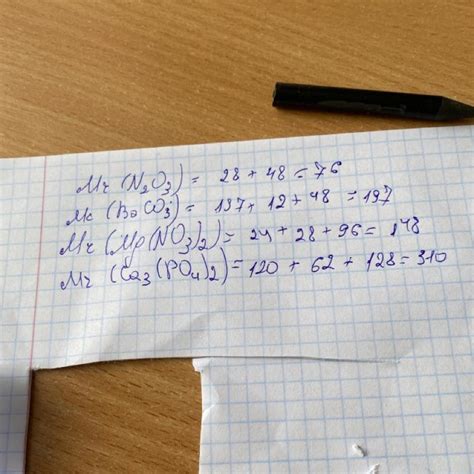 Mr (N2O3) = 28 + 48 = 76
Mr (BaCO3) = 137 + 12 + 48 = 197
Mr (Mg(NO3)2) = 24 + 28 + 96 = 148
Mr (Ca3(PO4)2) = 120 + 62 + 128 = 310